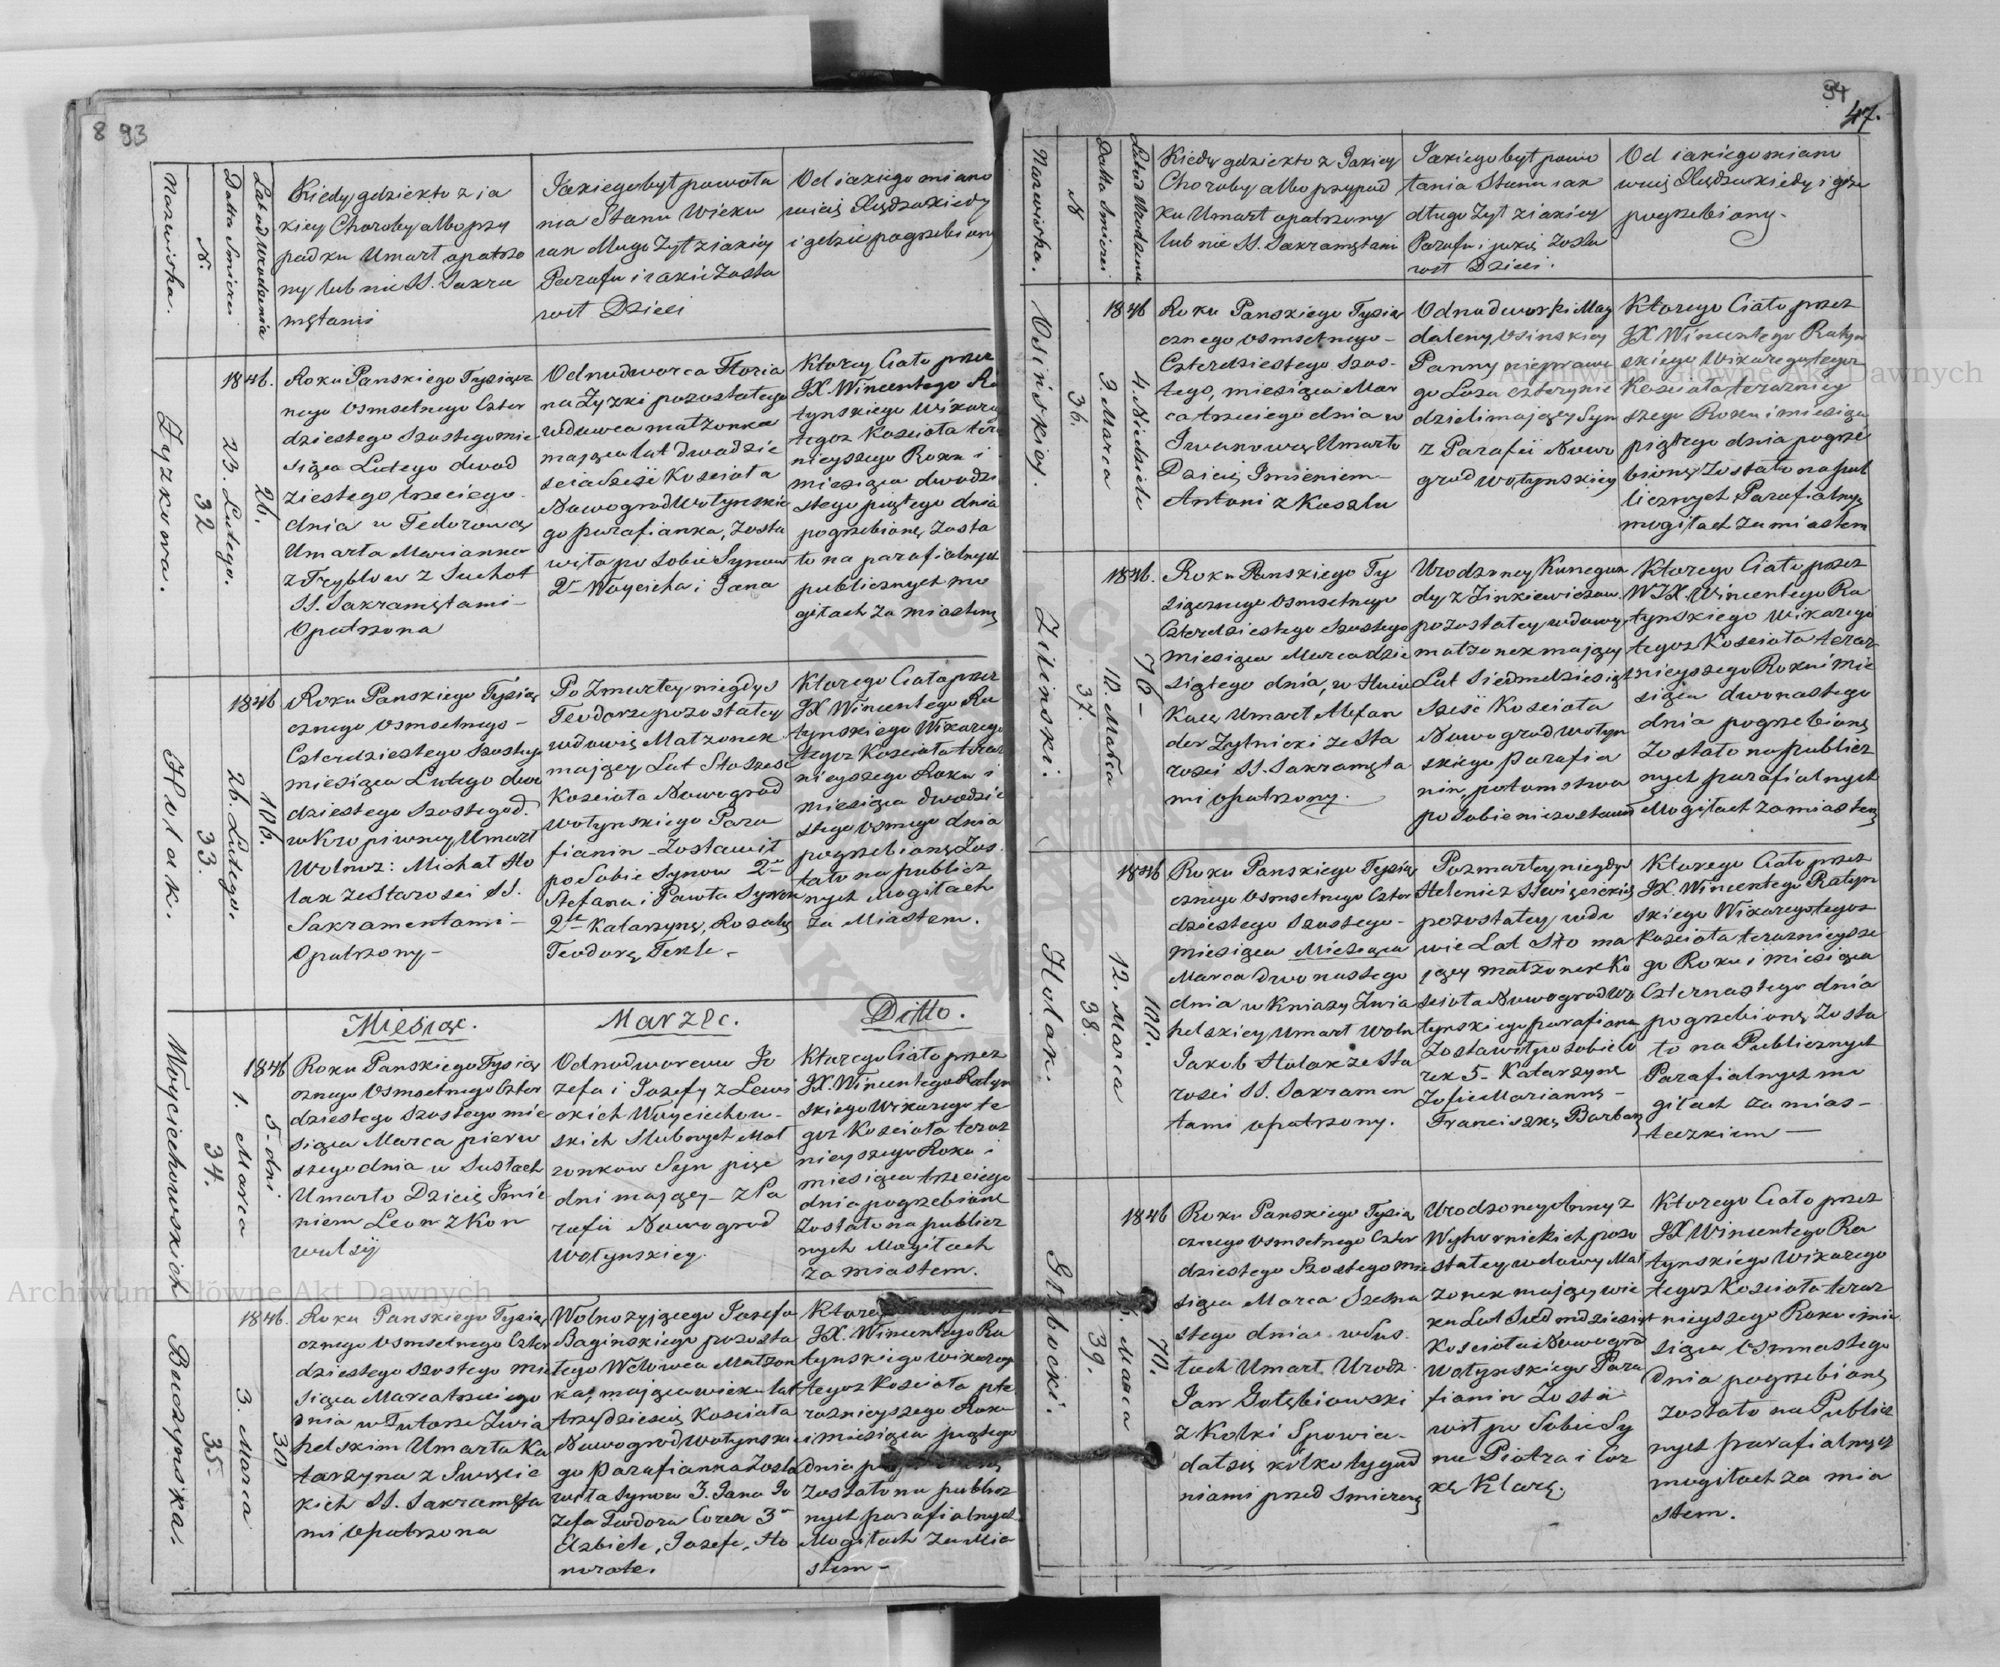 8 93
Nazwiska.
N.
Datta Smierci
Lat od Urodzenia
Kiedy gdzie kto z ia
kiey Choroby albo przy
padku Umarł opatrzo
ny lub nie SS. Sakra
mętami
Jakiego był powoła
nia Stanu Wieku
iak długo Żył z iakiey
Parafii i iakie Zosta
wił Dzieci
Od iakiego miano
wicie Xiędza kiedy
i gdzie pogrzebiony
Zyzkowa.
32
23. Lutego.
1846.
26.
Roku Pańskiego Tysiącz
nego Osmsetnego Czter
dziestego Szostego mie
siąca Lutego dwud
ziestego trzeciego
dnia w Fedorowcy
Umarła Marianna
z Fryblow z Suchot
SS. Sakramętami -
Opatrzona
Odnodworca Floria
na Zyzki pozostałego
wdowca małżonka
mająca lat dwadzie
scia sześć Koscioła
Nowogrodwołynskie
go parafianka, Zosta
wiła po sobie Synow
2 - Woyciecha i Jana
Ktorey Ciało przez
JX. Wincentego Ra
tynskiego Wikarego
tegoz Kosciola tera
znieyszego Roku i
miesiąca dwudzie
stego piątego dnia
pogrzebioną Zosta
ło na parafialnych
publicznych mo
giłach za miastem
Holak.
33.
26. Lutego.
1846.
106.
Roku Pańskiego Tysią
cznego Osmsetnego -
Czterdziestego Szostego
miesiąca Lutego dwu
dziestego Szostego d.
w Kropiwney Umarł
Wolnoż: Michał Ho
lak ze Starosci SS.
Sakramentami -
Opatrzony -
Po Zmarłey niegdys
Teodorze pozostałey
wdowię Małżonek
maiący Lat Sto szesc
Kosciola Nowogrod
wołynskiego Para
fianin - Zostawił
po Sobie Synow 2
Stefana i Pawła
Katarzynę, Rozalę
Teodorę, Teklę -
Ktorego Ciało przez
JX Wincentego Ra
tynskiego Wikarego
tegoz Kosciola teraz
nieyszego Roku i
miesiąca dwudzie
stego osmego dnia
pogrzebioną Zos
tało na publicz
nych Mogiłach
za Miastem.
Miesiąc. Marzec. Ditto.
Woyciechowskich
34.
1. Marca
1846
5. dni
Roku Pańskiego Tysią
cznego Osmsetnego Czter
dziestego Szostego mie
siąca Marca pierw
szego dnia w Susłach
Umarło Dziecię Imie
niem Leon z Kon
wulsij
Odnodworcow Jo
zefa i Jozefy z Lewi
ckich Woyciechow -
skich Slubnych Mał
zonkow Syn pięc
dni maiący - z Pa
rafii Nowogrod
Wołynskiey.
Ktorego Ciało przez
JX. Wincentego Ratyn
skiego Wikarego te
goz Kosciola teraz
nieyszego Roku i
miesiąca trzeciego
dnia pogrzebione
Zostało na publicz
nych Mogiłach
za miastem.
Buczynska.
35.
3. Marca
1846.
30
Roku Pańskiego Tysią
cznego Osmsetnego Czter
dziestego Szostego mie
siąca Marca trzeciego
dnia w Tutorze Zwia
helskim Umarła Ka
tarzyna z Swięcic
kich SS. Sakramęta
mi Opatrzona
Wolnożyjącego Jozefa
Baginskiego pozosta
łego Wdowca Małżon
ka, mająca wieku lat
trzydziescie Kosciola
Nowogrodwołynskie
go Parafianka Zosta
wiła Synow 3. Jana Jo
zefa Teodora Corek 3
Elzbietę, Jozefę, Ho
noratę.
JX. Wincentego Ra
tynskiego Wikarego
tegoz Kosciola
raznieyszego Roku
i miesiąca piątego
dnia
Zostało na publicz
nych parafialnych
Mogiłach za Mia
stem -
94
47.
Nazwiska.
N
Datta Smierci
Lat od Urodzenia
Kiedy gdzie kto z Jakiey
Choroby albo przypad
ku Umarł opatrzony
lub nie SS. Sakramętami
Jakiego był powo
łania Stanu iak
długo Zył z iakiey
Parafii i jakię Zosta
wił Dzieci.
Od iakiego miano
wicię Xiędza kiedy i gdzie
pogrzebiony.
Osinskiey.
36.
3. Marca
1846
4. Niedziele
Roku Pańskiego Tysią
cznego Osmsetnego -
Czterdziestego Szos -
tego, miesiąca Mar
ca trzeciego dnia w
Iwanowcę Umarło
Dziecię Imieniem -
Antoni z Kaszlu
Odnodworki Mag
daleny Osinskiey
Panny nieprawe
go Łoza cztery nie
dzieli maiący Syn
z Parafii Nowo
grodwołynskiey
Ktorego Ciało przez
JX Wincentego Ratyn
skiego Wikarego tegoz
Kosciola terazniey
szego Roku i miesiąca
piątego dnia pogrze
bioną Zostało na pub
licznych Parafialnych
mogiłach za miastem
Zilinski.
37.
10. Marca
1846.
76 -
Roku Pańskiego Ty
siącznego Osmsetnego
Czterdziestego Szostego
miesiąca Marca dzie
siątego dnia, w
Umarł Alexan
der Zytnicki ze Sta
rosci SS. Sakramęta
mi opatrzony.
Urodzoney Kunegun
dy z Zinkiewiczow
pozostałey wdowy
małżonek maiący
Lat Siedmdziesiąt
Szesc Kosciola
Nowogrodwołyn
skiego Parafia
nin, potomstwa
po sobie nie zostawił
Ktorego Ciało przez
WJX. Wincentego Ra
tynskiego Wikarego
tegoz Kosciola teraz
nieyszego Roku i mie
siąca dwonastego
dnia pogrzebioną
Zostało na publicz
nych parafialnych
Mogiłach za miastem
Holak.
38.
12. Marca
1846
100.
Roku Pańskiego Tysią
cznego Osmsetnego Czter
dziestego Szostego -
miesiąca Miesiąca
Marca dwonastego
dnia w Kniazy Zwia
helskiey Umarł Woln
Jakob Holak ze Sta
rosci SS. Sakramen
tami opatrzony.
Po zmarłey niegdys
Helenie z Swięcickich
pozostałey wdo
wie Lat Sto ma
jący małżonek Ko
sciola Nowogrodwo
łynskiego parafianin
Zostawił po sobie Co
rek 5 - Katarzynę
Zofię Mariannę -
Franciszkę Barbarę
Ktorego Ciało przez
JX. Wincentego Ratyn
skiego Wikarego tegoz
Kosciola teraznieysze
go Roku i miesiąca
Czternastego dnia
pogrzebioną Zosta
ło na Publicznych
Parafialnych mo
giłach za mias -
teczkiem —
Głębocki.
39.
Marca
1846
70.
Roku Pańskiego Tysią
cznego Osmsetnego Czter
dziestego Szostego mie
siąca Marca Szesna
stego dnia w Sus
łach Umarł Urodz.
Jan Gołębiowski
z Kolki Spowia -
dałsię kilko tygod
niami przed smiercią
Urodzoney Anny z
Wyhornickich pozo
stałey wdowy Mał
zonek maiący wie
ku Lat Siedmdziesiąt
Kosciola Nowogrod
wołynskiego Para
fianin Zosta
wił po Sobie Sy
na Piotra i Cor
kę Klarę.
Ktorego Ciało przez
JX Wincentego Ra
tynskiego Wikarego
tegoz Kosciola teraz
nieyszego Roku i mie
siąca Osmnastego
Dnia pogrzebioną
Zostało na Publicz
nych parafialnych
mogiłach za mia
stem.
Archiwum Główne Akt Dawnych
Archiwum Główne Akt Dawnych